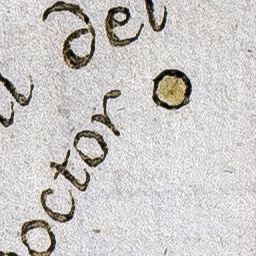 del
octor